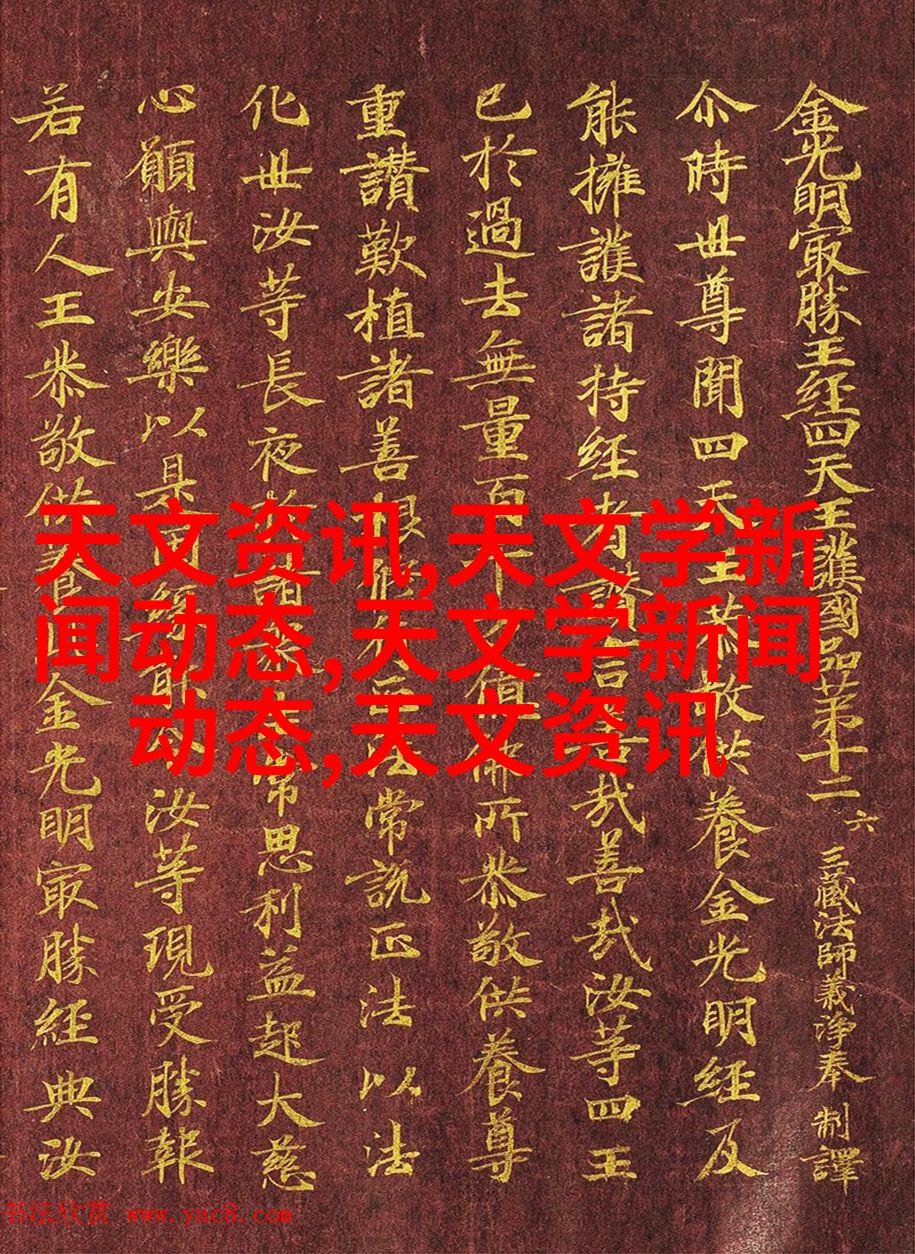 金光明冣勝王經四天王護國品苐十二 六 三藏法師義淨奉 制譯
尒時世尊聞四天王恭敬供養金光明經及
能擁護諸持經者讚言善哉善哉汝等四王
已於過去無量百千佛所恭敬供養尊
重讚歎植諸善根脩行正法常說正法以法
化世汝等長夜諸常思利益起大慈
心願與安樂以是因緣汝等現受勝報
若有人王恭敬供養金光明冣勝經典汝
天文资讯,天文学新
闻动态,天文学新闻
动态,天文资讯
书法欣赏 www.yac8.com